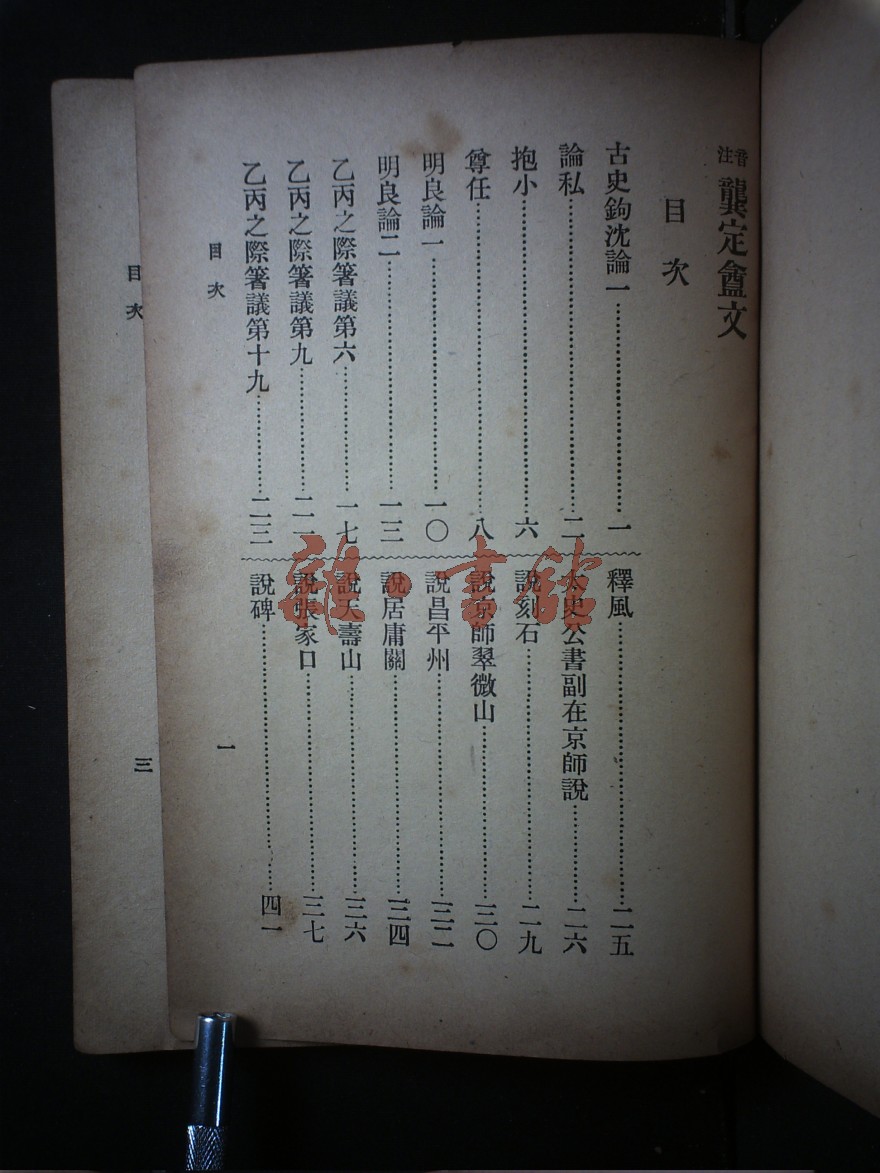 音注 龔定盦文
目次
古史鉤沈論一……一
論私……二
抱小……六
尊任……八
明良論一……一〇
明良論二……一三
乙丙之際箸議第六……一七
乙丙之際箸議第九……二一
乙丙之際箸議第十九……二三
釋風……二五
太史公書副在京師說……二六
說刻石……二九
說京師翠微山……三〇
說昌平州……三二
說居庸關……三四
說天壽山……三六
說張家口……三七
說碑……四一
目次
一
目次
三
雜·書館